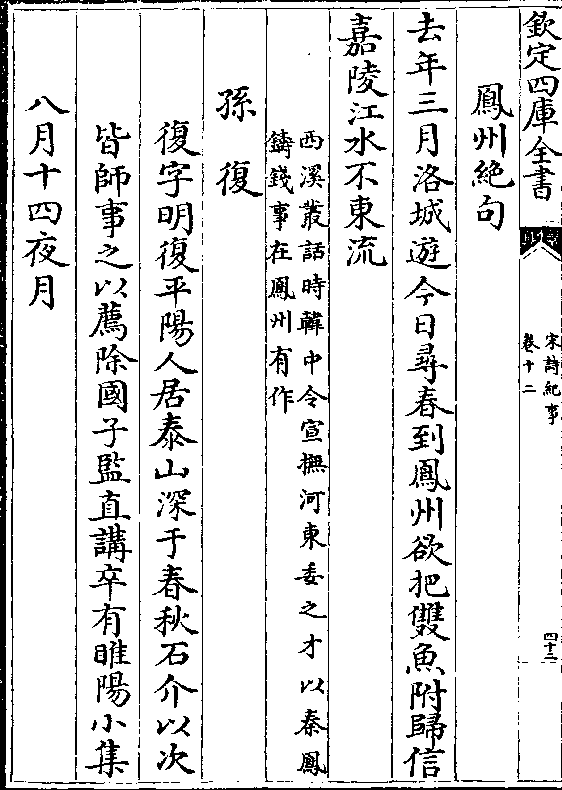 欽定四庫全書
宋詩紀事
卷十二
四十三
鳳州絶句
去年三月洛城遊今日尋春到鳳州欲把雙魚附歸信
嘉陵江水不東流
西溪叢話時韓中令宣撫河東委之才以秦鳳
鑄錢事在鳳州有作
孫復
復字明復平陽人居泰山深于春秋石介以次
皆師事之以薦除國子監直講卒有睢陽小集
八月十四夜月